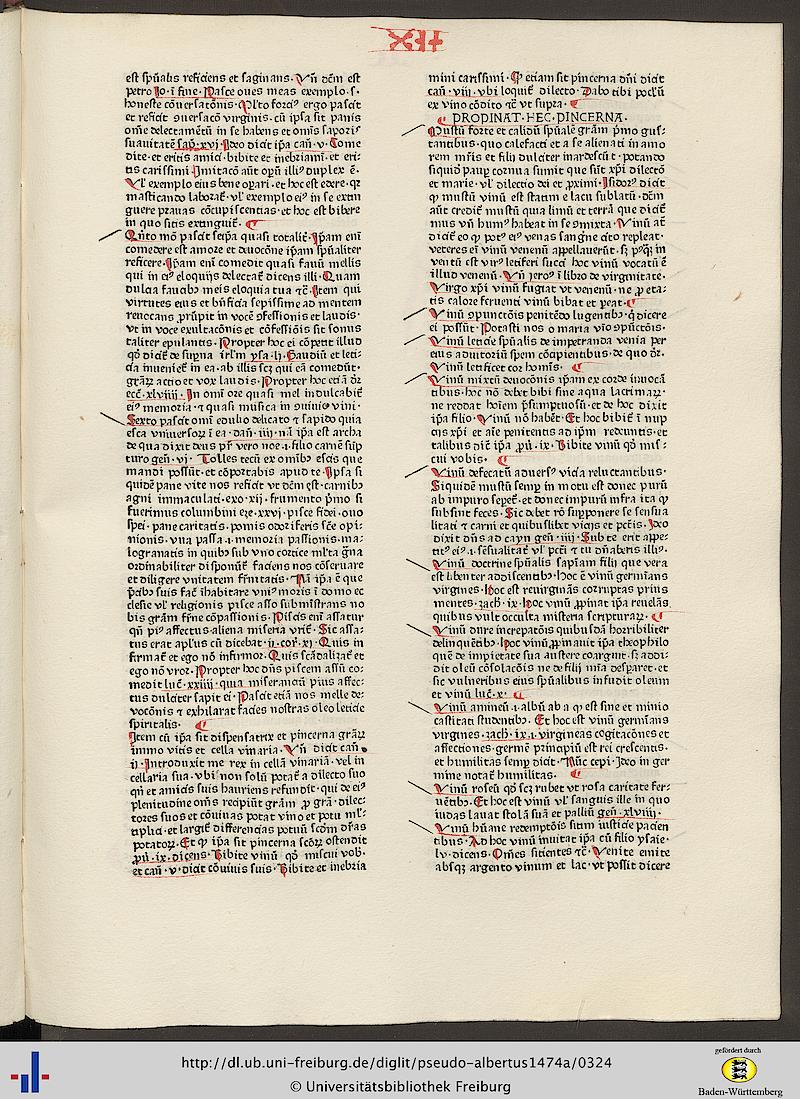 est spũalis reficiens et saginans. Vñ dẽm est
petro Io. ĩ fine. Pasce oues meas exemplo. s.
honeste cõuersatõnis. Mlto forciꝰ ergo pascit
et reficit ꝯuersacõ virginis. cũ ipsa sit panis
omẽ delectamẽtũ in se habens et omĩs saporis
suauitatẽ sap. xvj. Ideo dicit ip̃a cañ. v. Come
dite et eritis amici. bibite et inebriamĩ. et eri
tis carissimi. Imitacõ aũt opũ illiꝰ duplex ẽ.
Vl exemplo eius bene opari. et hoc est edere. qꝛ
masticando laborat̃. vl exemplo eiꝰ in se extin
guere prauas cõcupiscentias. et hoc est bibere
in quo sitis extinguit̃.
Qñto mõ pascit seip̃a quasi totalit̃. Ip̃am enĩ
comedere est amore et deuocõne ip̃am spũaliter
reficere. Ip̃am enĩ comedit quasi fauũ mellis
qui in eiꝰ eloquijs delectat̃ dicens illi. Quam
dulcia faucibꝰ meis eloquia tua ⁊c̃. Item qui
virtutes eius et bñficia sepissime ad mentem
reuocans ꝓrũpit in vocẽ ꝯfessionis et laudis.
vt in voce exultacõnis et cõfessiõis sit sonus
taliter epulantis. Propter hoc ei cõpetit illud
qd̃ dicit̃ de supna irl̃m ysa. lj. Gaudiũ et leti
cia inueniet̃ in ea. ab illis scꝫ qui eã comedũt.
gr̃aꝝ actio et vox laudis. Propter hoc etiã dr̃
ecc̃. xlviiij. In om̃i ore quasi mel indulcabit̃
eiꝰ memoria. ⁊ quasi musica in ꝯuiuio vini.
Sexto pascit om̃i edulio delicato ⁊ sapido quia
esca vniuersoꝝ ĩ ea. dañ. iiij. nã ip̃a est archa
de qua dixit deus pr̃ vero noe. i. filio carnẽ sũp
turo geñ. vj. Tolles tecũ ex omibꝰ escis que
mandi possũt. et cõportabis apud te. Ipsa si
quidẽ pane vite nos reficit vt dẽm est. carnibꝰ
agni immaculati. exo. xij. frumento pr̃mo si
fuerimus columbini eze. xxvj. pisce fidei. ouo
spei. pane caritatis. pomis odoriferis scẽ opi
nionis. vua passa. i. memoria passionis. ma
logranatis in quibꝰ sub vno cortice ml̃ta gr̃na
ordinabiliter disponũt̃ faciens nos cõseruare
et diligere vnitatem fr̃nitatis. Nã ip̃a ẽ que
inhabitare vniꝰ moris ĩ domo ec
clesie vl religionis pisce asso submĩstrans no
bis gr̃am fr̃ne cõpassionis. Piscis enĩ assatur
qñ piꝰ affectus. aliena miseria vrit̃. Sic assa
tus erat apl̃us cũ dicebat. ij. cor̃. xj. Quis in
firmat̃ et ego nõ infirmor. Quis scãdalizat̃ et
ego nõ vror. Propter hoc dñs piscem assũ co
medit luc̃. xxiiij. quia miserancũ pius affec
tus dulciter sapit ei. Pascit etiã nos melle de
vocõnis ⁊ exhilarat facies nostras oleo leticie
spiritalis.
Item cũ ip̃a sit dispensatrix et pincerna gr̃aꝝ
immo vitis et cella vinaria. Vñ dicit cañ.
ij. Introduxit me rex in cellã vinariã. vel in
cellaria sua. vbi non solũ potat̃ a dilecto suo
qñ et amicis suis hauriens refundit. qui de eiꝰ
plenitudine om̃s recipiũt gr̃am ꝓ gr̃a. dilec
tores suos et cõuiuas potat vino et potu ml̃
tiplici. et largit̃ differencias potuũ scdm dr̃as
potatoꝝ. Et ꝙ ip̃a sit pincerna scõꝝ ostendit
pũ. ix. dicens. Bibite vinũ qd̃ miscui vob̃.
et cañ. v. dicit cõuiuis suis. Bibite et inebria
mini carissimi. Ꝙ etiam sit pincerna dñi dicit
cañ. viij. vbi loquit̃ dilecto. Dabo tibi poclũ
ex vino cõdito ⁊c̃ vt supra.
PROPINAT. HEC. PINCERNA.
Mustũ forte et calidũ spũale gr̃am pr̃mo gus
tantibus. quo calefacti et a se alienati in amo
rem mr̃is et filij dulciter inardescũt. potando
siquid̃ paup̃ cornua sumit que sũt xp̃i dilectõ
et marie. vl dilectio dei et ꝓximi. Isidorꝰ dicit
ꝙ mustũ vinũ est statim e lacu sublatũ. dẽm
aũt credit̃ mustũ qua limũ et terrã que dicit̃
mus vñ humꝰ habeat in se ꝯmixta. Vinũ at̃
dicit̃ eo ꝙ potꝰ eiꝰ venas sangñe cito repleat.
veteres eĩ vinũ venenũ appellauerũt. sꝫ pꝰqꝫ in
ventũ est virꝰ letiferi succi hoc vinũ vocatũ ẽ
illud venenũ. Vñ Jeroꝰ ĩ libro de virginitate.
Virgo xp̃i vinũ fugiat vt venenũ. ne ꝓ eta
tis calore feruenti vinũ bibat et peat.
Vinũ ꝯpunctõis penitẽdo lugentibꝰ. q̃ dicere
ei possũt. Potasti nos o maria vĩo ꝯpũctõis.
Vinũ leticie spũalis de impetranda venia per
eius adiutoriũ spem cõcipientibus. de quo dr̃.
Vinũ letificet cor homĩs.
Vinũ mixtũ deuocõnis ip̃am ex corde inuocã
tibus. hoc nõ debet bibi sine aqua lacrimaꝝ.
ne reddat hoĩem p̃sumptuosũ. et de hoc dixit
ip̃a filio. Vinũ nõ habẽt. Et hoc bibit̃ ĩ nup
cijs xp̃i et aĩe penitentis ad ip̃m redeuntis. et
talibus dicit ip̃a pũ. ix. Bibite vinũ qd̃ mis
cui vobis.
Vinũ defecatũ aduersꝰ vicia reluctantibus.
Siquidẽ mustũ semp in motu est donec purũ
ab impuro sepet̃. et donec impurũ infra ita ꝙ
subsint feces. Sic debet rõ suppone̾re se sensua
litati ⁊ carni et quibuslibet vicijs et pctĩs. Ideo
dixit dñs ad cayn geñ. iiij. Sub te erit appe
titꝰ eiꝰ. i. sẽsualitat̃ vl pcti ⁊ tu dñaberis illiꝰ.
Vinũ doctrine spũalis sapĩam filij que vera
est libenter addiscentibꝰ. hoc ẽ vinũ germĩans
virgines. hoc est reuirginãs corruptas prius
mentes. zach̃. ix. Hoc vinũ ꝓpinat ip̃a reuelãs
quibus vult occulta misteria scripturaꝝ.
Vinũ dure increpatõis quibusdã horribiliter
delinquẽtibꝰ. Hoc vinũ ꝓpinauit ip̃a theophilo
quẽ de impietate sua austere coarguit. sꝫ addi
dit oleũ cõsolacõis ne de filij mĩa desparet. et
sic vulneribus eius spũalibus infudit oleum
et vinũ luc̃. x.
Vinũ amineũ. i. albũ ab a ꝙ est sine et minio
castitati studentibꝰ. Et hoc est vinũ germĩans
virgines. zach̃. ix. i. virgineas cogitacõnes et
affectiones. germẽ principiũ est rei crescentis.
et humilitas semp dicit. Nũc cepi. Ideo in ger
mine notat̃ humilitas.
Vinũ roseũ qd̃ scꝫ rubet vt rosa caritate fer
uẽtibꝰ. Et hoc est vinũ vl sanguis ille in quo
iudas lauat stolã suã et palliũ geñ. xlviiij.
Vinũ hũane redemptõis sitim iusticie pacien
tibus. Ad hoc vinũ inuitat ip̃a cũ filio ysaie.
lv. dicens. Om̃es sitientes ⁊c̃. Venite emite
absqꝫ argento vinum et lac. vt possit dicere
http://dl.ub.uni-freiburg.de/diglit/pseudo-albertus1474a/0324
© Universitätsbibliothek Freiburg
gefördert durch
Baden-Württemberg